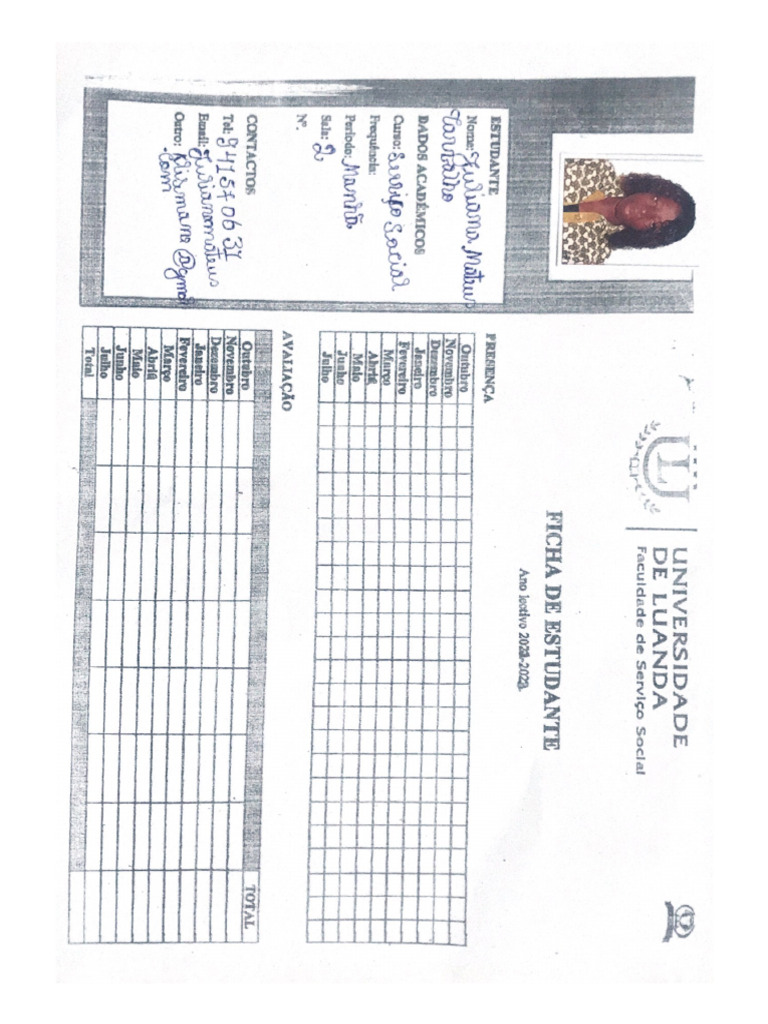 UNIVERSIDADE
DE LUANDA
Faculdade de Serviço Social
FICHA DE ESTUDANTE
Ano lectivo 2022-2023
ESTUDANTE
Nome: Juliana Mateus
Carvalho
DADOS ACADÉMICOS
Curso: Serviço Social
Frequência:
Período: Manhã
Sala: 2
Nº.
CONTACTOS
Tel:
Email: Julianamateus
Outro:
.com
PRESENÇA
Outubro
Novembro
Dezembro
Janeiro
Fevereiro
Março
Abril
Maio
Junho
Julho
AVALIAÇÃO
TOTAL
Outubro
Novembro
Dezembro
Janeiro
Fevereiro
Março
Abril
Maio
Junho
Julho
Total